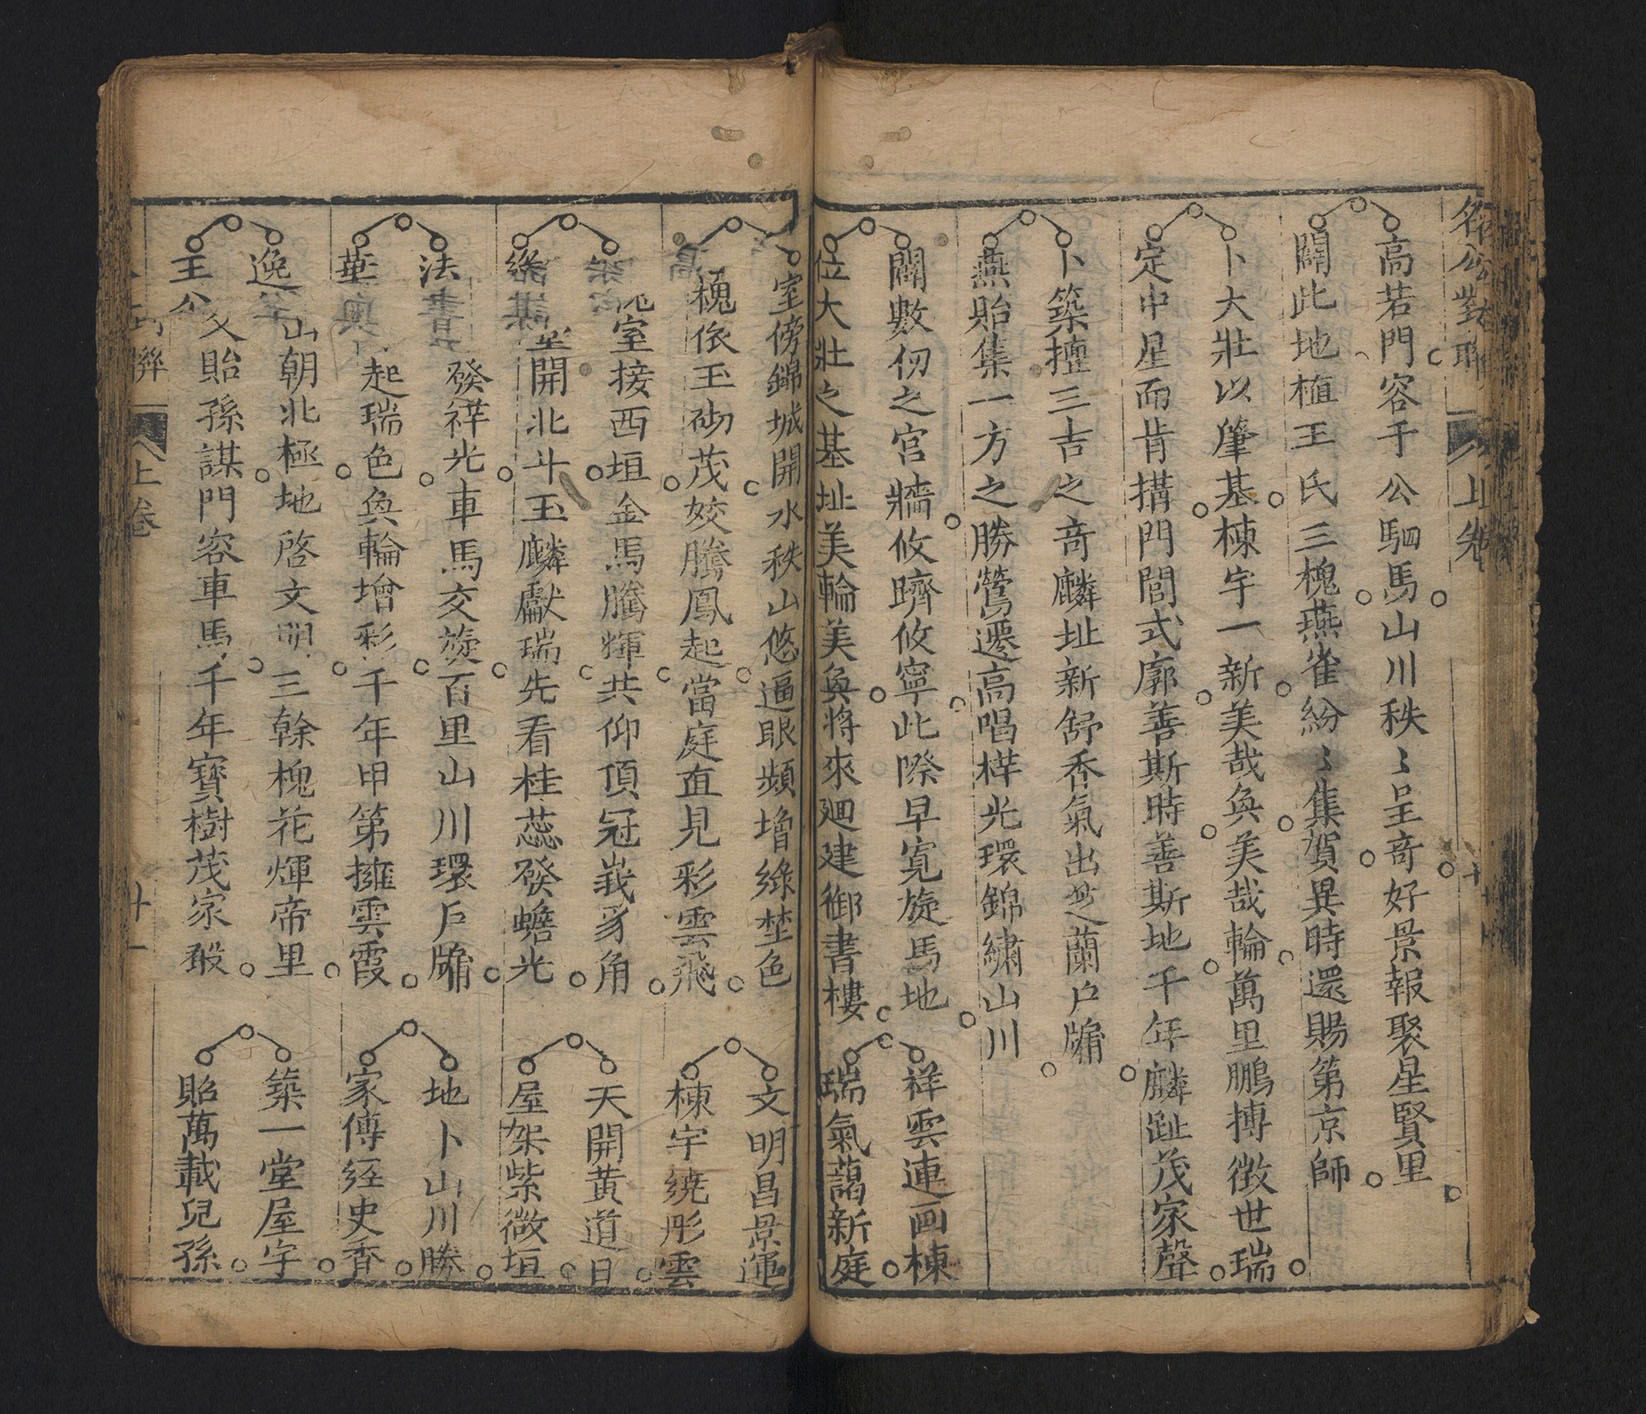 名公對聯 上卷
高若門容千公駟馬山川秩〻呈竒好景報聚星賢里
闢此地植王氏三槐燕雀紛〻集賀異時還賜第京師
卜大壯以肇基棟宇一新美哉奐美哉輪萬里鵬摶徴世瑞
定中星而肯搆門閭式廓善斯時善斯地千年麟趾茂家聲
卜築擅三吉之竒麟址新舒香氣出𠫵之蘭戶牖
燕貽集一方之勝鶯遷高唱梓光環錦繡山川
闢數仞之宮牆攸躋攸寧此際早寬旋馬地
位大壯之基址美輪美奐將來廻建御書樓
祥雲連画棟
瑞氣藹新庭
室傍錦城開水秩山悠逼眼頻增綠埜色
槐依玉砌茂姣騰鳳起當庭直見彩雲飛
文明昌景運
棟宇繞彤雲
室接西垣金馬騰輝共仰頂冠峩豸角
開北斗玉麟獻瑞先看桂蕊發蟾光
天開黄道日
屋架紫微垣
法 發祥光車馬交旋百里山川環戶牖
華 起瑞色奐輪增彩千年甲第擁雲霞
地卜山川勝
家傳経史香
逸 山朝北極地啓文明三榦槐花煇帝里
王公 父貽孫謀門容車馬千年寳樹茂家聲
築一堂屋宇
貽萬載兒孫
聯 上卷
廿一